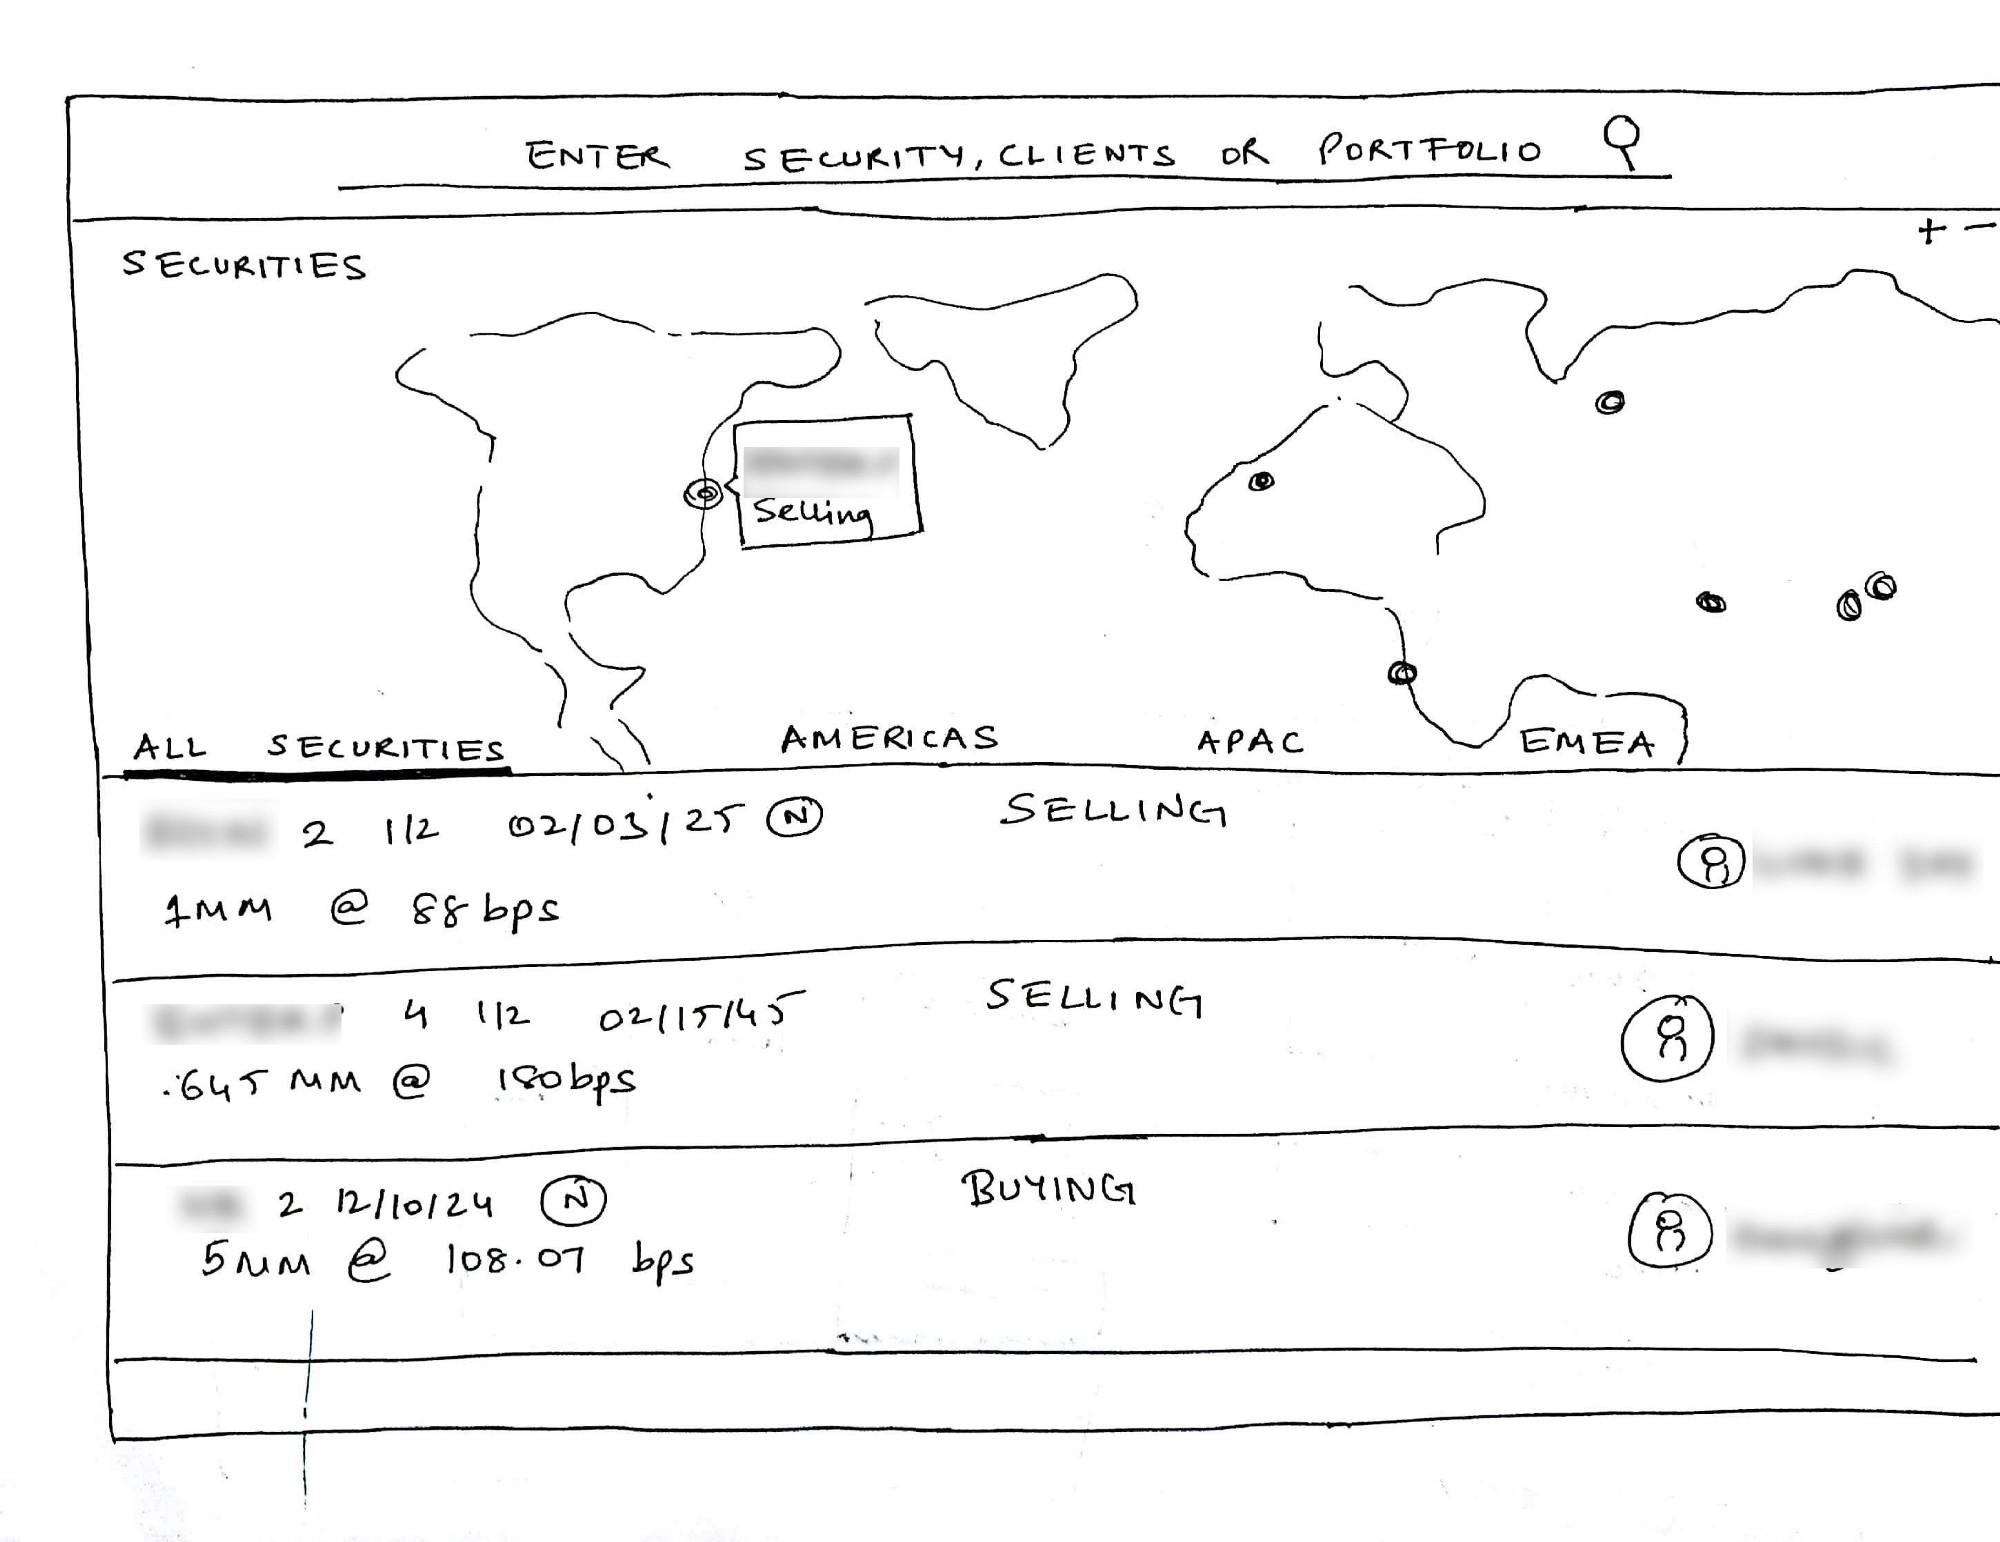 ENTER SECURITY, CLIENTS OR PORTFOLIO
+ -
SECURITIES
Selling
ALL SECURITIES AMERICAS APAC EMEA
2 1/2 02/03/25 N SELLING
1MM @ 88 bps
4 1/2 02/15/45 SELLING
.645 MM @ 180 bps
2 12/10/24 N BUYING
5MM @ 108.07 bps